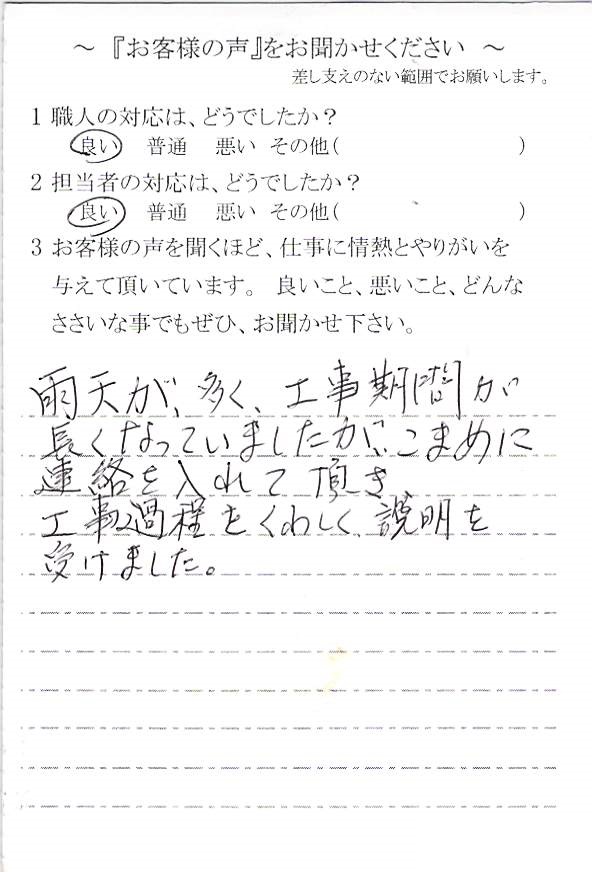 ～『お客様の声』をお聞かせください ～
差し支えのない範囲でお願いします。
1 職人の対応は、どうでしたか？
良い 普通 悪い その他( )
2 担当者の対応は、どうでしたか？
良い 普通 悪い その他( )
3 お客様の声を聞くほど、仕事に情熱とやりがいを
与えて頂いています。 良いこと、悪いこと、どんな
ささいな事でもぜひ、お聞かせ下さい。
雨天が、多く、工事期間が
長くなっていましたが、こまめに
連絡を入れて頂き、
工事過程をくわしく、説明を
受けました。